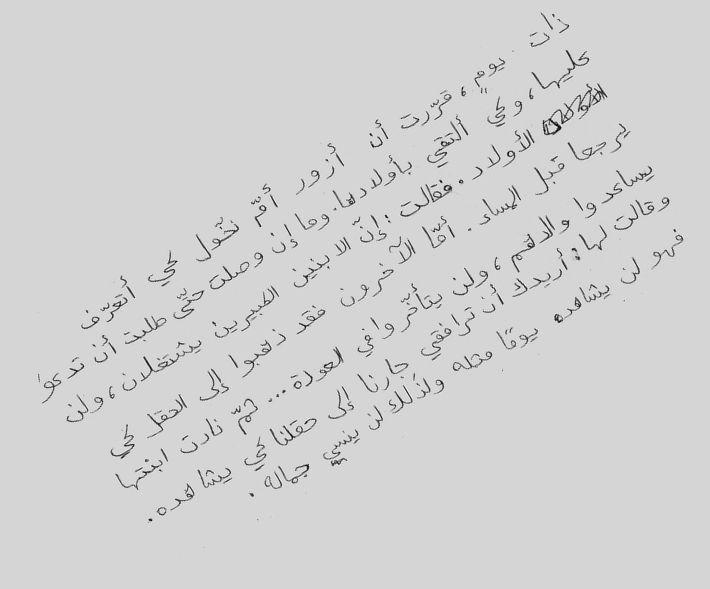 ذات يوم، قرّرت أن أزور أمّ نخّول كي أتعرّف
عليها، وكي ألتقي بأولادها. وما إن وصلت حتّى طلبت أن تدعوَ
الأولاد. فقالت: إنّ الابنين الكبيرين يشتغلان، ولن
يرجعا قبل المساء. أمّا الآخرون فقد ذهبوا إلى الحقل كي
يساعدوا والدهم، ولن يتأخّروا في العودة... ثمّ نادت ابنتها
وقالت لها: أريدك أن ترافقي جارنا إلى حقلنا كي يشاهده.
فهو لن يشاهده يومًا مثله ولذلك لن ينسى جماله.